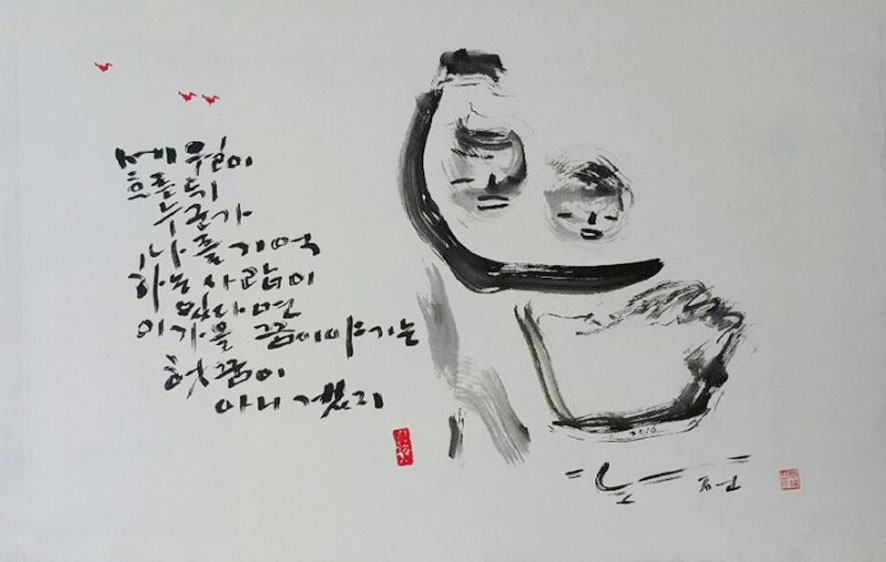 세월이
흐른 뒤
누군가
나를 기억
하는 사람이
있다면
이 가을 꿈에 이야기는
헛꿈이
아니겠지